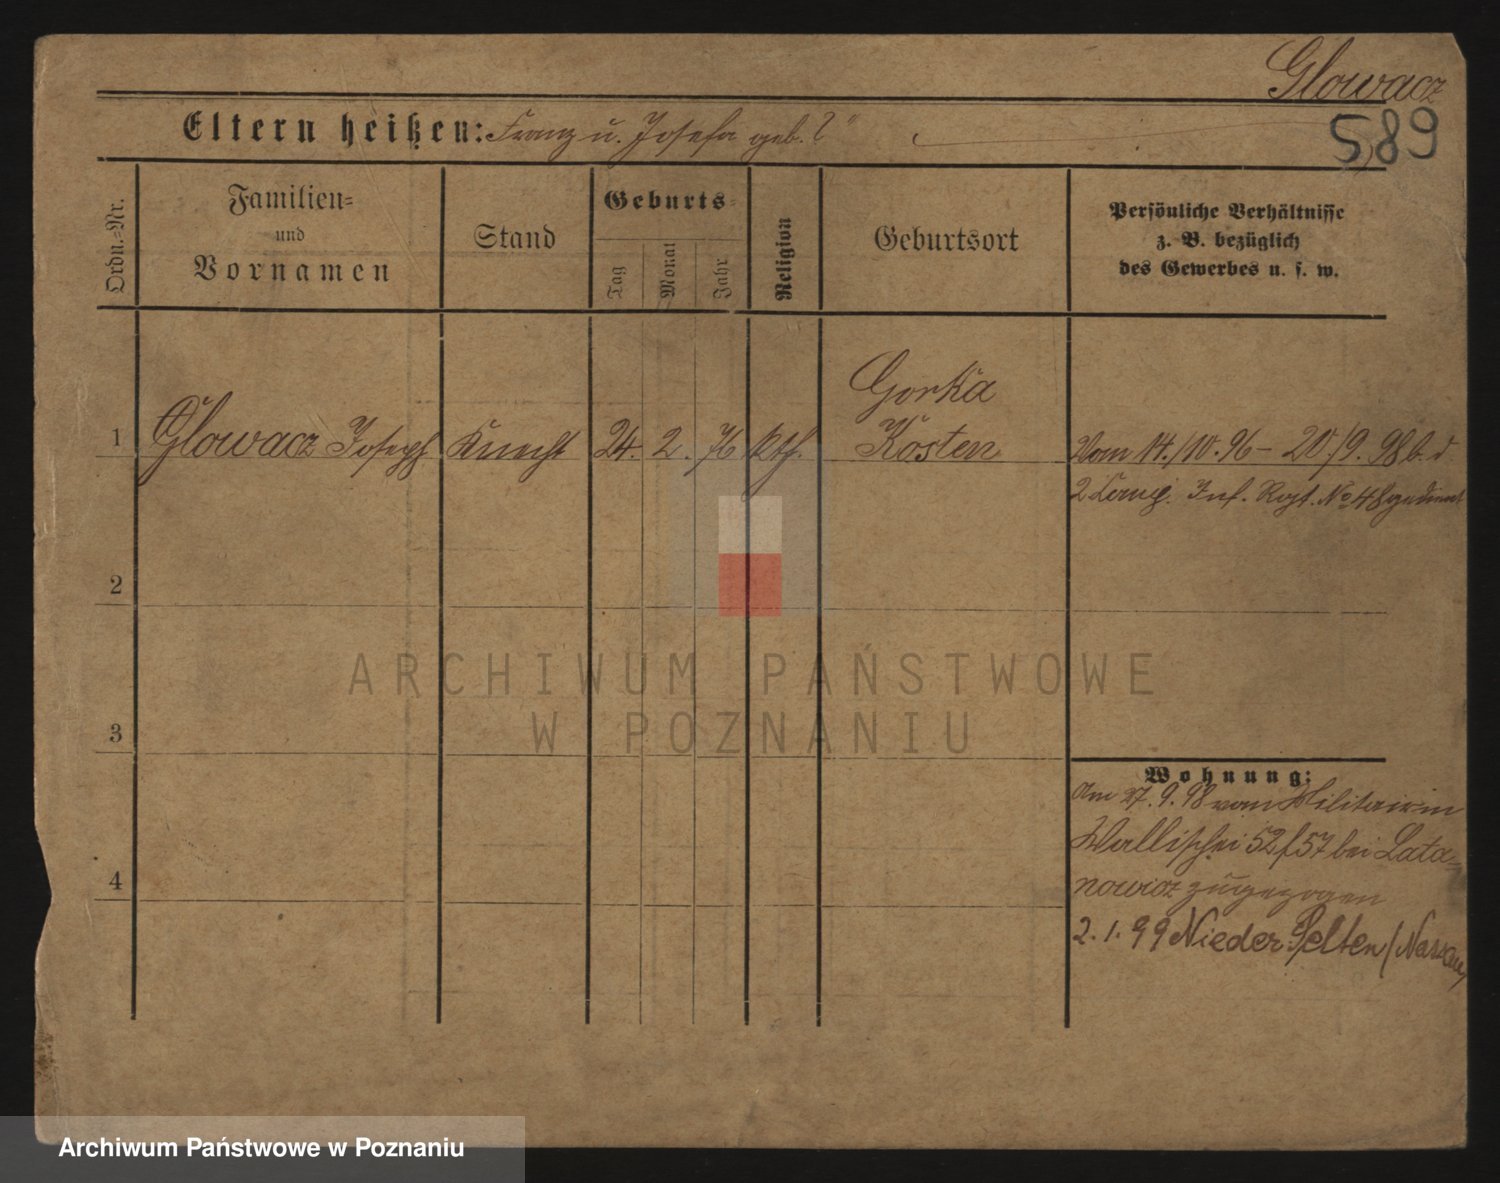 Glowacz
589
Eltern heißen: Franz u. Josefa geb. ?
Ordn.-Nr.
Familien-
und
Vornamen
Stand
Geburts-
Tag
Monat
Jahr
Religion
Geburtsort
Persönliche Verhältnisse
z. B. bezüglich
des Gewerbes u. s. w.
Gorka
1 Glowacz Joseph Knecht 24. 2. 76 kth. Kosten Vom 14./10. 96 – 20./9. 98 b. d.
2 Comp. Inf. Rgt. No 48 gedient
2
ARCHIWUM PAŃSTWOWE
W POZNANIU
3
Wohnung:
Am 27. 9. 98 vom Militair in
Wallischei 52/57 bei Lata-
4
nowicz zugezogen
2. 1. 99 Nieder Selten (Nassau)
Archiwum Państwowe w Poznaniu